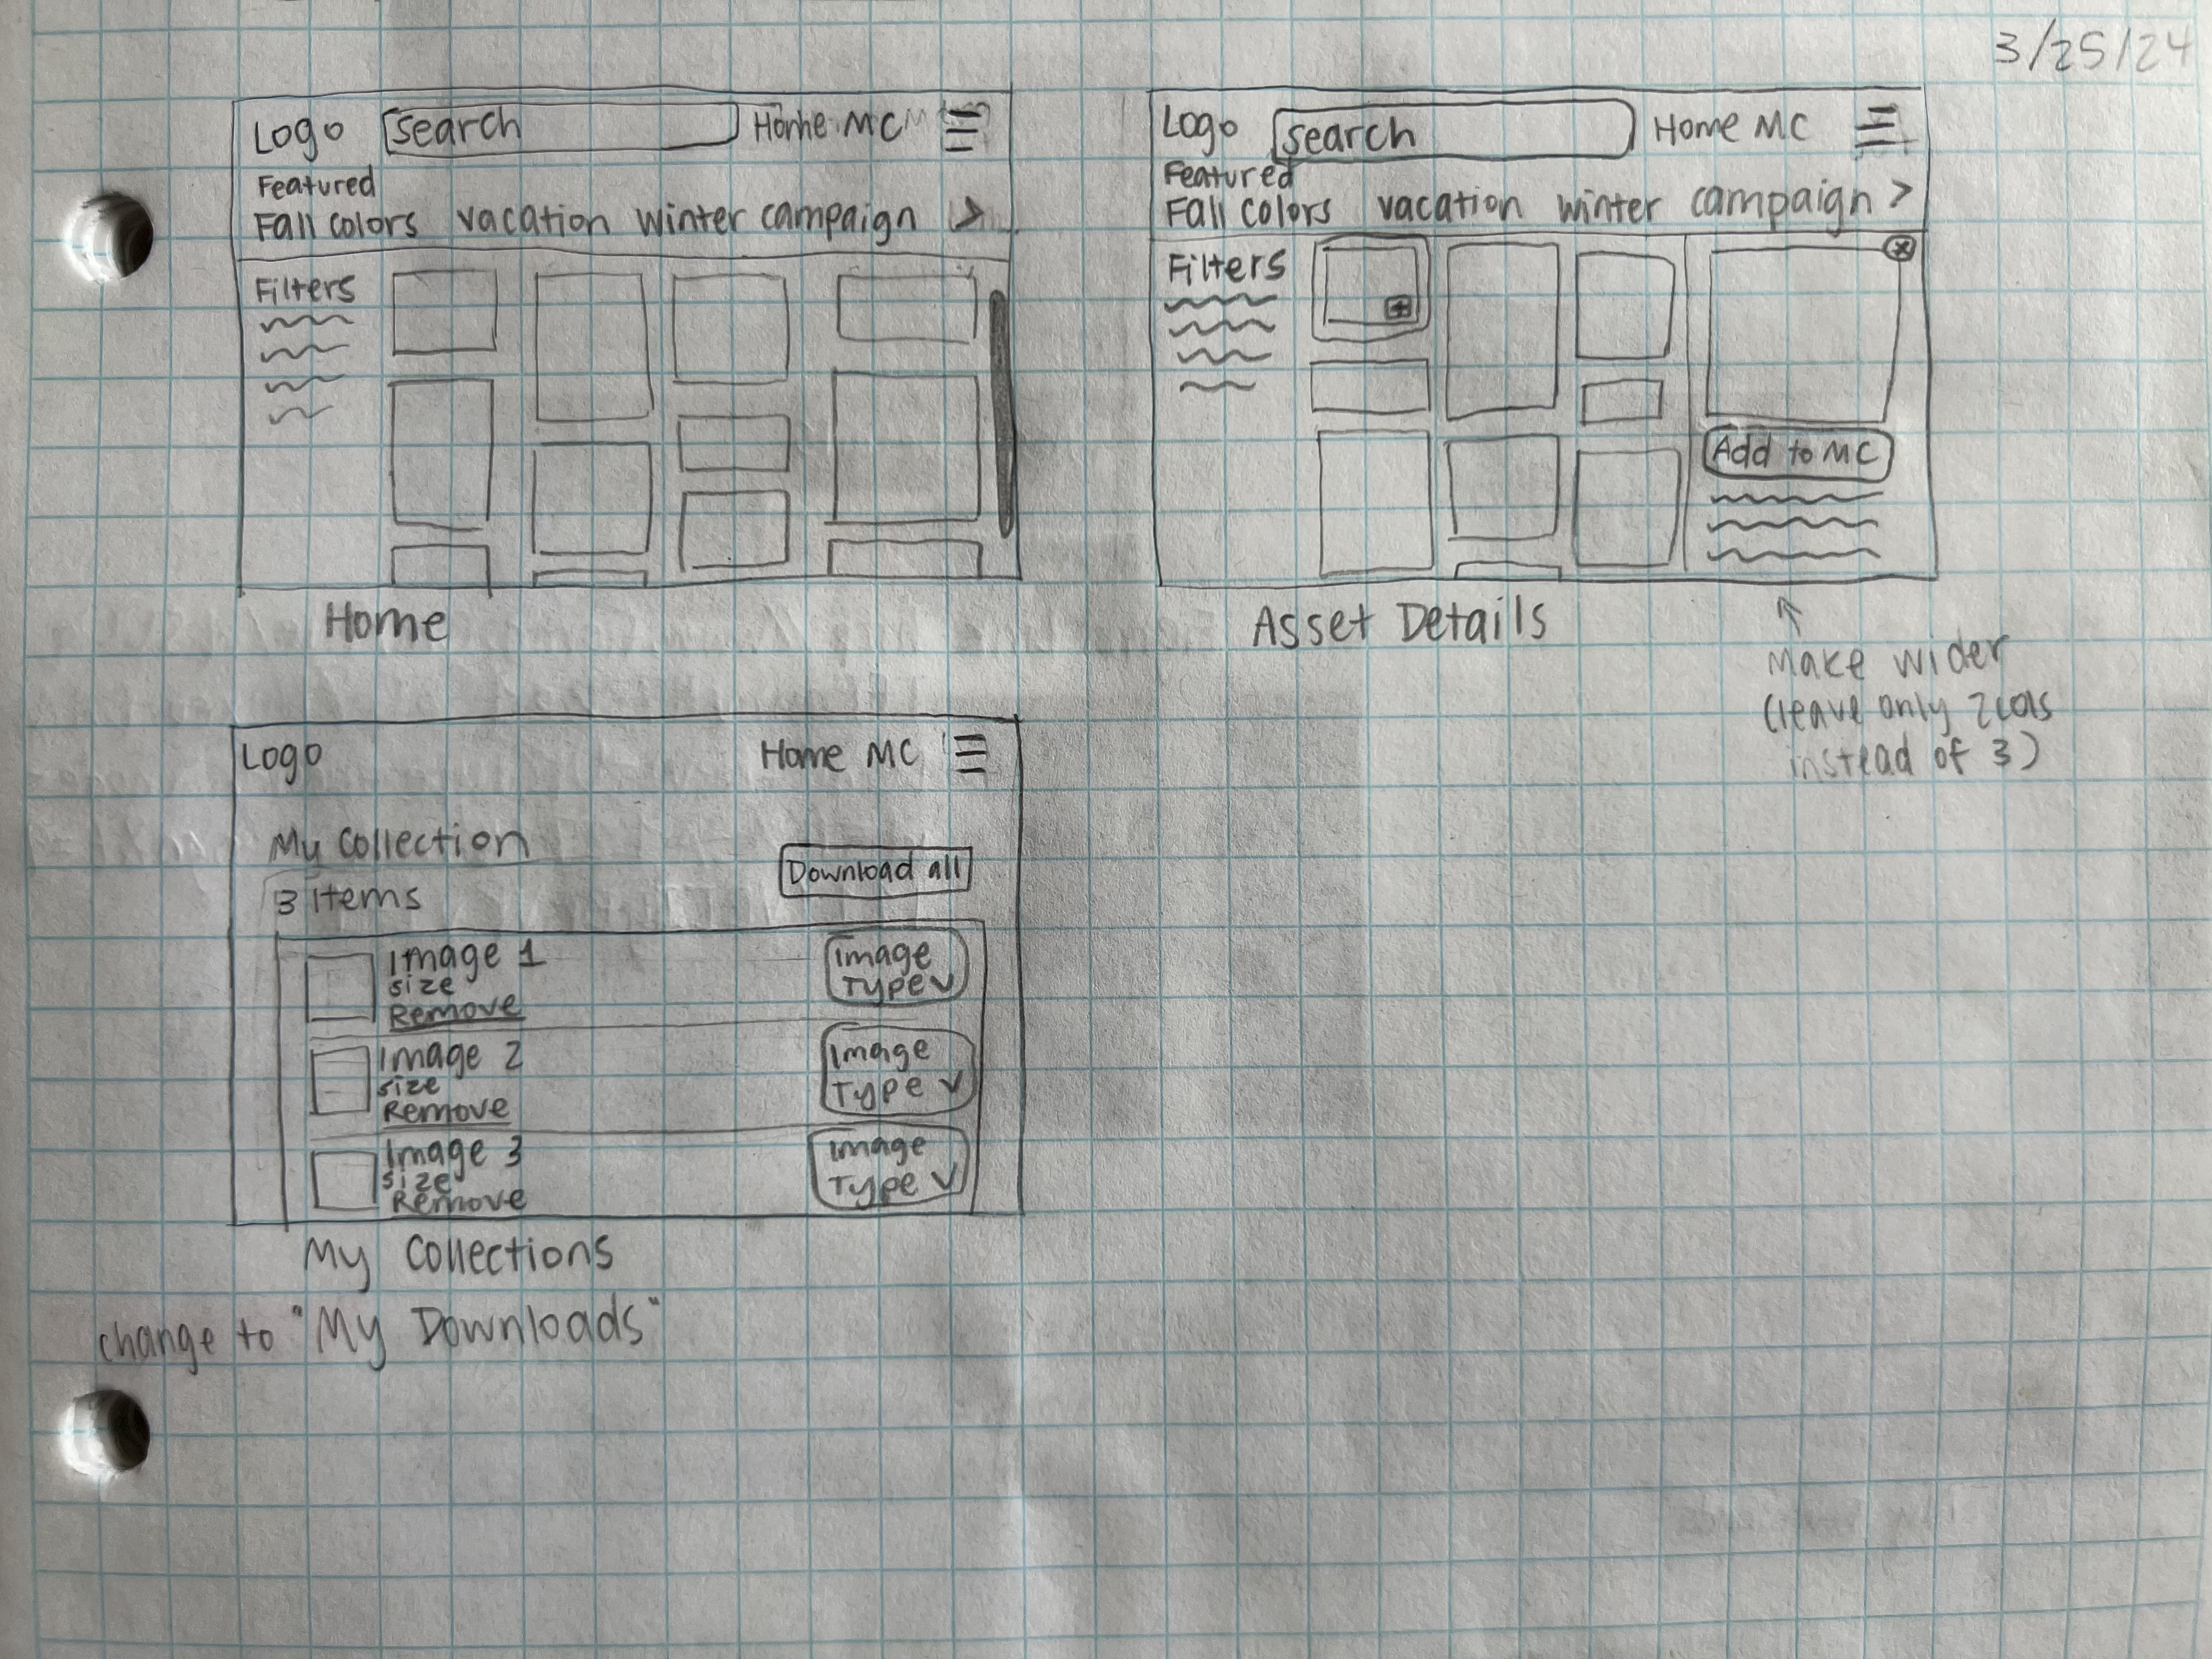 3/25/24
Logo search Home MC
Featured
Fall colors vacation winter campaign >
Filters
Home
Logo search Home MC
Featured
Fall colors vacation winter campaign >
Filters
Add to MC
Asset Details
Make wider
(leave only 2 cols
instead of 3)
Logo Home MC
My Collection
Download all
3 items
Image 1
size
Remove
Image
Type
Image 2
size
Remove
Image
Type
Image 3
size
Remove
Image
Type
My Collections
change to "My Downloads"